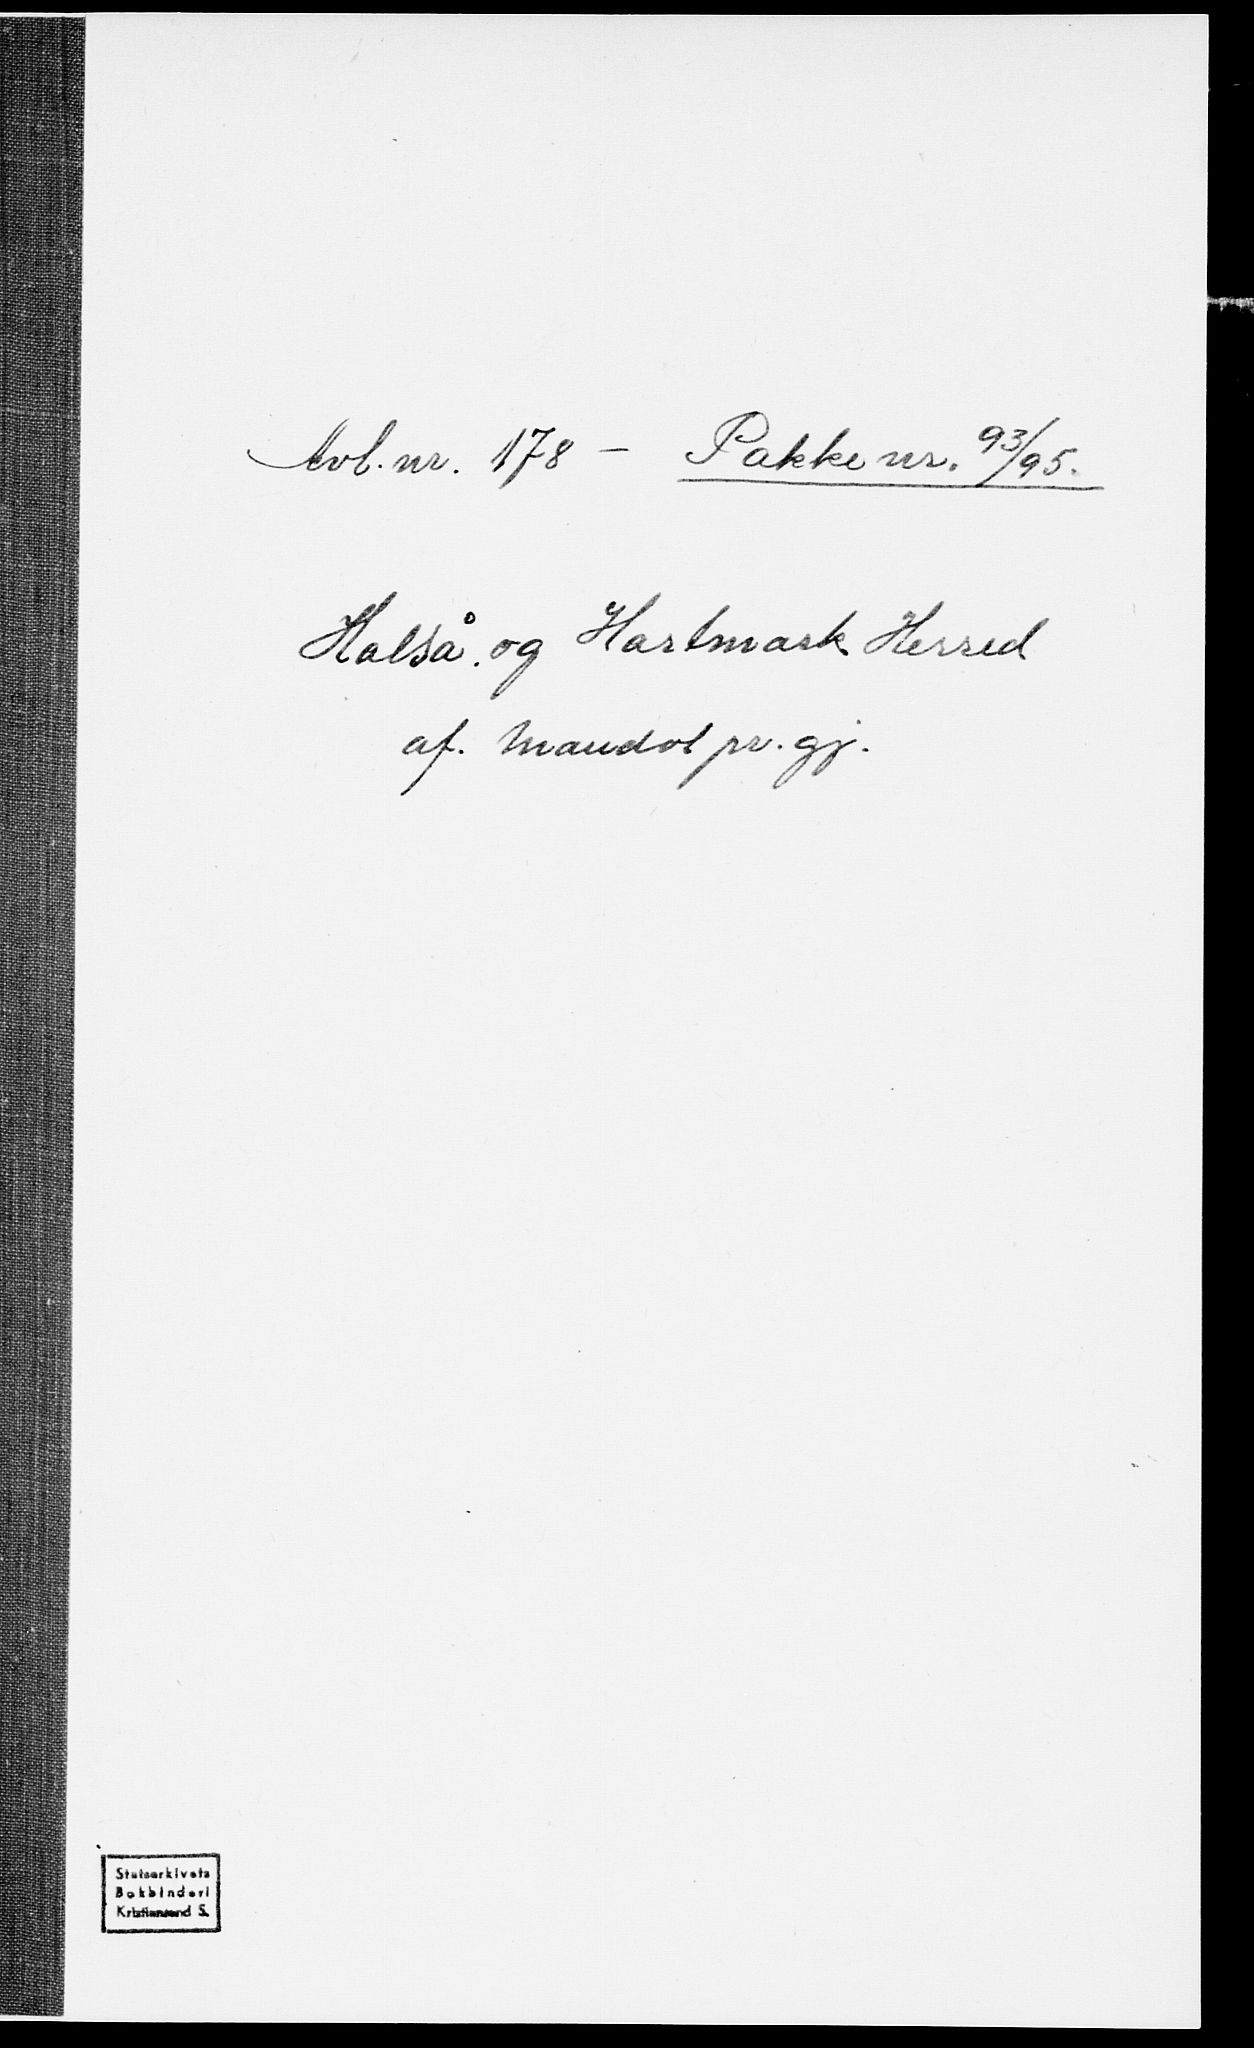 Avl. nr. 178 - Pakke nr. 93/95.
Halså og Hartmark Herred
af. Mandal pr. gj.
Statsarkivets
Bokbinderi
Kristiansand S.